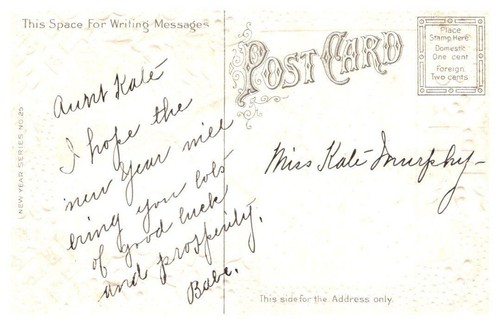 This Space For Writing Messages
POST CARD
Place
Stamp Here
Domestic
One cent
Foreign
Two cents
NEW YEAR SERIES NO. 25
Aunt Kate
I hope the
new Year will
bring you lots
of good luck
and prosperity.
Babe.
Miss Kate Murphy
This side for the Address only.